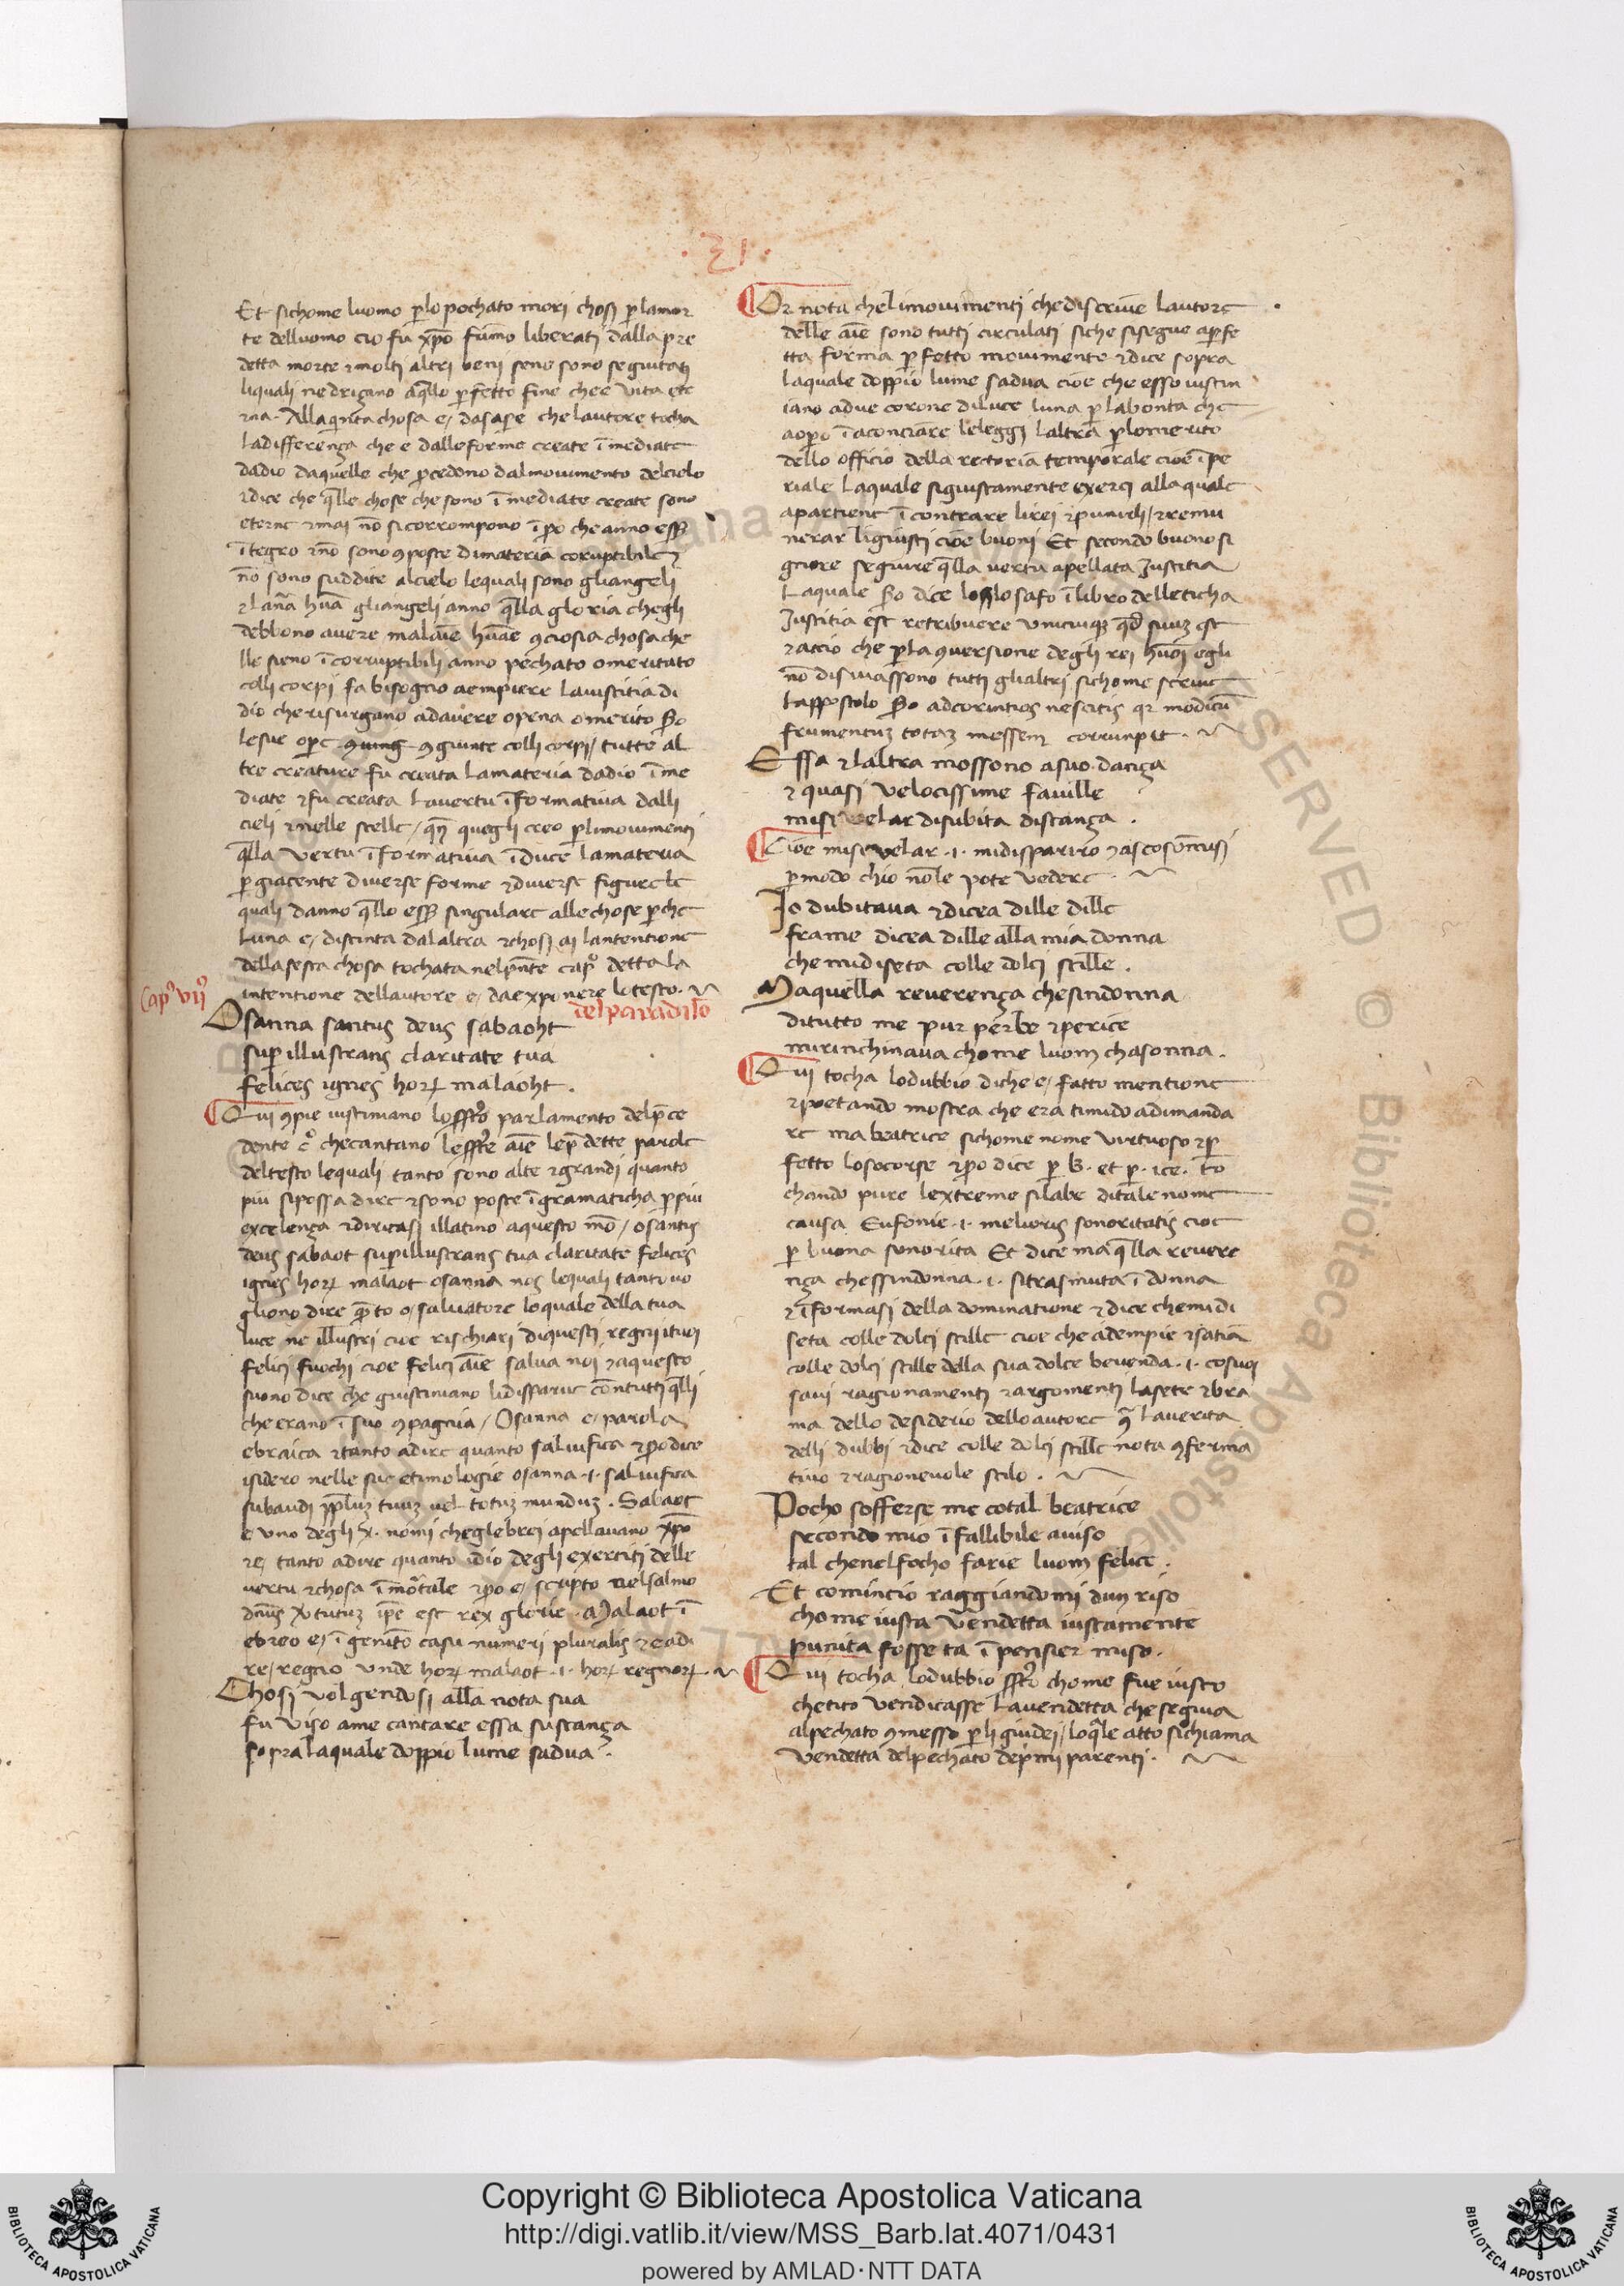 ·21·
Et sichome luomo p̱lo pochato mori chosi p̱ lamor
te delluomo cio fu xp̄o fūmo liberati dalla pre
detta morte ⁊ molti altri beni seno sono seguitati
liquali ne drizano aq̄llo p̱fetto fine che e vita ete
rna. Alla q̄inta chosa e/ dasape che lautore tocha
ladifferenza che e dalle forme create ī mediate
dadio daquelle che p̱cedono dal movimento delcielo
⁊ dice che q̄lle chose che sono ī mediate create sono
eterne ⁊ mai nō si corrompono ī p̱o che anno ess̄
ītegro ⁊ nō sono ꝯposte di materia coruptibile ⁊
nō sono suddite alcielo lequali sono gliangeli
⁊ lanā huā gliangeli anno q̄lla gloria chegli
debbono avere malaīe huāe ꝯciosia chosa che
lle sieno ī corruptibili anno pechato o meritato
colli corpi fa bisogno aempiere laiustitia di
dio che risurgano adavere opena o merito s̄o
le sue op̱e ꝯgiunte colli corpi/ tutte al
tre creature fu creata lamateria dadio ī me
diate ⁊ fu creata lavertu īformativa dalli
cieli ⁊ nelle stelle/ quegli creo p̱ limovimenti
q̄lla vertu īformativa īduce lamateria
p̱giacente diverse forme ⁊ diverse figure le
quali danno q̄llo ess̄ singulare alle chose p̱che
luna e/ distinta dalaltra ⁊ chosi ai lantentione
della sesta chosa tochata nel p̄nte cap̊ detta la
intentione dellautore e/ da exponere lo testo.
Cap̊ vij̊
del paradiso
Osanna santus deus sabaoht
sup̱ illustrans claritate tua
felices ignes horꝝ malaoht.
Qui ꝯpie iustiniano parlamento delp̄ce
dente c̊ checantano aīe lep̄dette parole
deltesto lequali tanto sono alte ⁊ grandi quanto
piu sipossa dire ⁊ sono poste ī gramaticha p̱ piu
excelenza ⁊ diricasi illatino aquesto mō/ osantus
deus sabaot sup̱illustrans tua claritate felices
ignes horꝝ malaot osanna nos lequali tanto vo
gliono dire o/ salvatore loquale della tua
luce ne illustri cioe rischiari diquesti regni ituoi
felici fuochi cioe felici aīe salva noi ⁊ aquesto
suono dice che giustiniano lidisparue cōntutti q̄lli
che erano ī suo ꝯpagnia/ Osanna e/ parola
ebraica ⁊ tanto adire quanto salvifica ⁊ p̱o dice
isidero nelle sue etimologie osanna .i. salvifica
subaudi p̱p̄luꝫ tuuꝫ vel totuꝫ munduꝫ. Sabaot
e uno degli x. nomi cheglebrei apellavano xp̄o
⁊ e/ tanto adire quanto idio degli exerciti delle
vertu ⁊ chosa īmortale ⁊ p̱o e/ scripto nelsalmo
dn̄us v̊tutuꝫ ip̄e est rex glorie. Malaot ī
ebreo e/ ī genitō casu numeri pluralis ⁊ e adi
re/ regno unde horꝝ malaot .i. horꝝ regnorꝝ.
Chosi volgendosi alla nota sua
fu viso ame cantare essa sustanza
sopra laquale doppio lume sadua.
Or nota chelimovimenti che discrive lautore
delle aīe sono tutti circulati siche sisegue ap̱fe
tta forma p̱fetto movimento ⁊ dice sopra
laquale doppio lume sadua cioe che esso iustin
iano adue corone diluce luna p̱ labonta che
aop̱o ī aconciare leleggi laltra p̱lomerito
dello officio della rectoria temporale cioe īpe
riale laquale sigiustamente exerci alla quale
apartiene ī contrare lirei ⁊ punirli/ ⁊ remu
nerar̄ ligiusti cioe buoni Et secondo buono si
gnore seguire q̄lla vertu apellata Justitia
Laquale s̄o dice losafo ī libro delleticha
Justitia est retribuere unicuiqꝫ q̄d suuꝫ est
⁊ accio che p̱la ꝯversione degli rei egli
nō disviassono tutti glialtri sichome scrive
lappostolo s̄o adcorintios nescitis qꝛ modicū
frumentuꝫ totaꝫ messem corrunpit.
Essa ⁊ laltra mossono asuo danza
⁊ quasi velocissime faville
misi velar disubita distanza.
Cioe misi velar .i. midispariro ⁊
p̱ modo chio nōle pote vedere.
Io dubitava ⁊ dicea dille dille
frame dicea dille alla mia donna
che mi diseta colle dolci stille.
Ma quella reverenza chesindonna
ditutto me pur perbe ⁊ perice
mirinchinava chome luom chasonna.
Qui tocha lodubbio diche e/ fatto mentione
⁊ poetando mostra che era timido adimanda
re ma beatrice sichome nome virtuoso ⁊ p̱
fetto losocorse ⁊ p̱o dice p̱ b. et p̱ .ice. to
chando pure lextreme silabe ditale nome
causa Eufonie .i. melioris sonoritatis cioe
p̱ buona sonorita Et dice ma q̄lla revere
nza chessindonna .i. sitrasmuta ī donna
⁊ īformasi della dominatione ⁊ dice che midi
seta colle dolci stille cioe che adempie ⁊ satia
colle dolci stille della sua dolce bevenda .i. cosuoi
savi ragionamenti ⁊ argomenti lasete ⁊ bra
ma dello desiderio dello autore laverita
delli dubbi ⁊ dice colle dolci stille nota ꝯferma
tivo ⁊ ragionevole stilo.
Pocho sofferse me cotal beatrice
secondo mio ī fallibile aviso
tal chenelfocho farie luom felice.
Et comincio raggiandomi dun riso
chome iusta vendetta iustamente
punita fosse ta ī pensier miso.
Qui tocha lodubbio chome fue iusto
chetito vendicasse lavendetta che seguia
alpechato ꝯmesso p̱ li giudei/ loq̄le atto sichiama
vendetta delpechato dep̱mi parenti.
Copyright © Biblioteca Apostolica Vaticana
http://digi.vatlib.it/view/MSS_Barb.lat.4071/0431
powered by AMLAD·NTT DATA
BIBLIOTECA APOSTOLICA VATICANA
BIBLIOTECA APOSTOLICA VATICANA